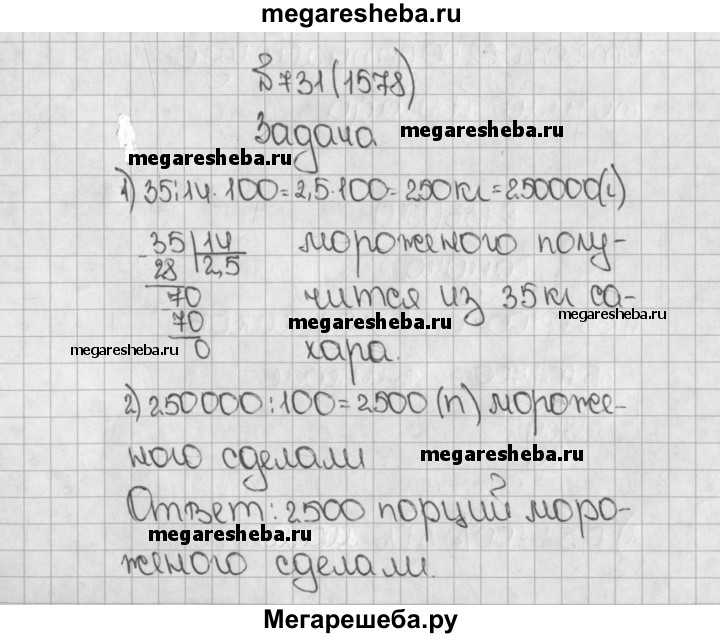 megaresheba.ru
№731(1578)
Задача.
megaresheba.ru
megaresheba.ru
1) 35:14·100=2,5·100=250кг=250000(г)
35|14 мороженого полу-
28 2,5
70 чится из 35кг са-
megaresheba.ru
70 megaresheba.ru
megaresheba.ru 0 хара.
2) 250000:100=2500 (п) мороже-
ного сделали megaresheba.ru
Ответ: 2500 порций моро-
megaresheba.ru
женого сделали.
Мегарешеба.ру